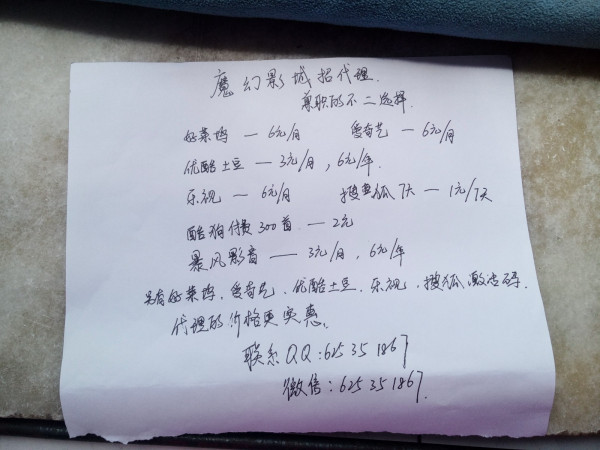 魔幻影城招代理.
兼职的不二选择.
好莱坞 — 6元/月 爱奇艺 — 6元/月
优酷土豆 — 3元/月, 6元/年.
乐视 — 6元/月 搜狐 7天 — 1元/7天
酷狗付费300首 — 2元
暴风影音 — 3元/月, 6元/年
另有好莱坞、爱奇艺、优酷土豆、乐视、搜狐激活码.
代理的价格更实惠.
联系QQ:625351867
微信:625351867.